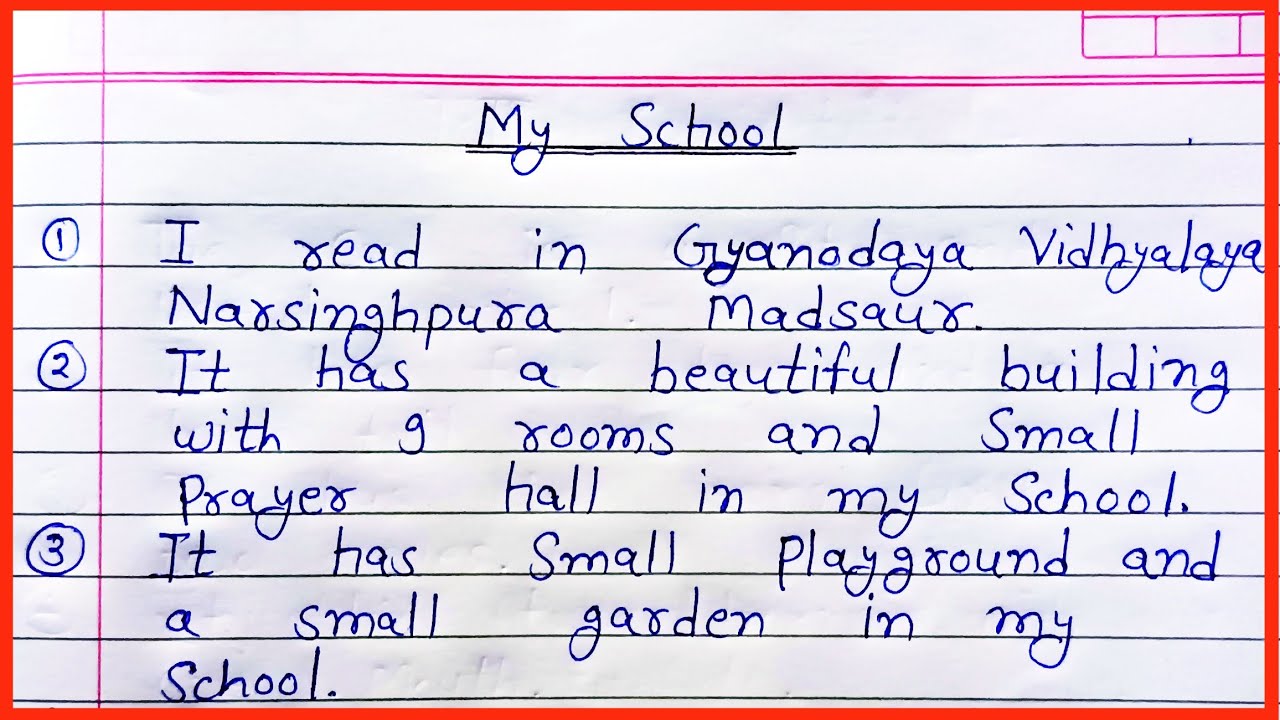 My School
① I read in Gyanodaya Vidhyalaya
Narsinghpura Madsaur.
② It has a beautiful building
with 9 rooms and Small
Prayer hall in my School.
③ It has Small Playground and
a small garden in my
School.